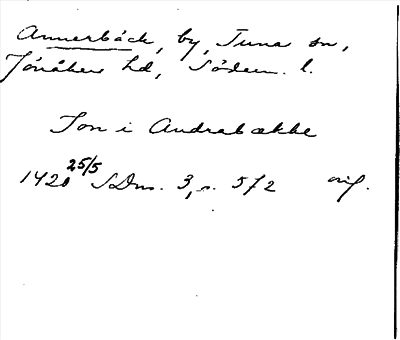 Annerbäck, by, Tuna sn,
Jönåkers hd, Södem. l.
Jon i Andrabække
1420 25/5 SDns. 3, s. 572 orig.